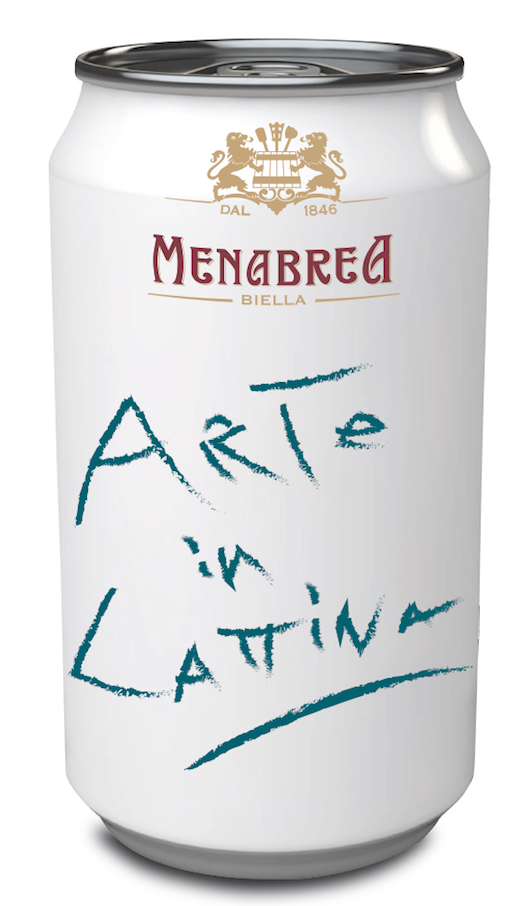 DAL 1846
MENABREA
BIELLA
ARTe
in
LATTiNA